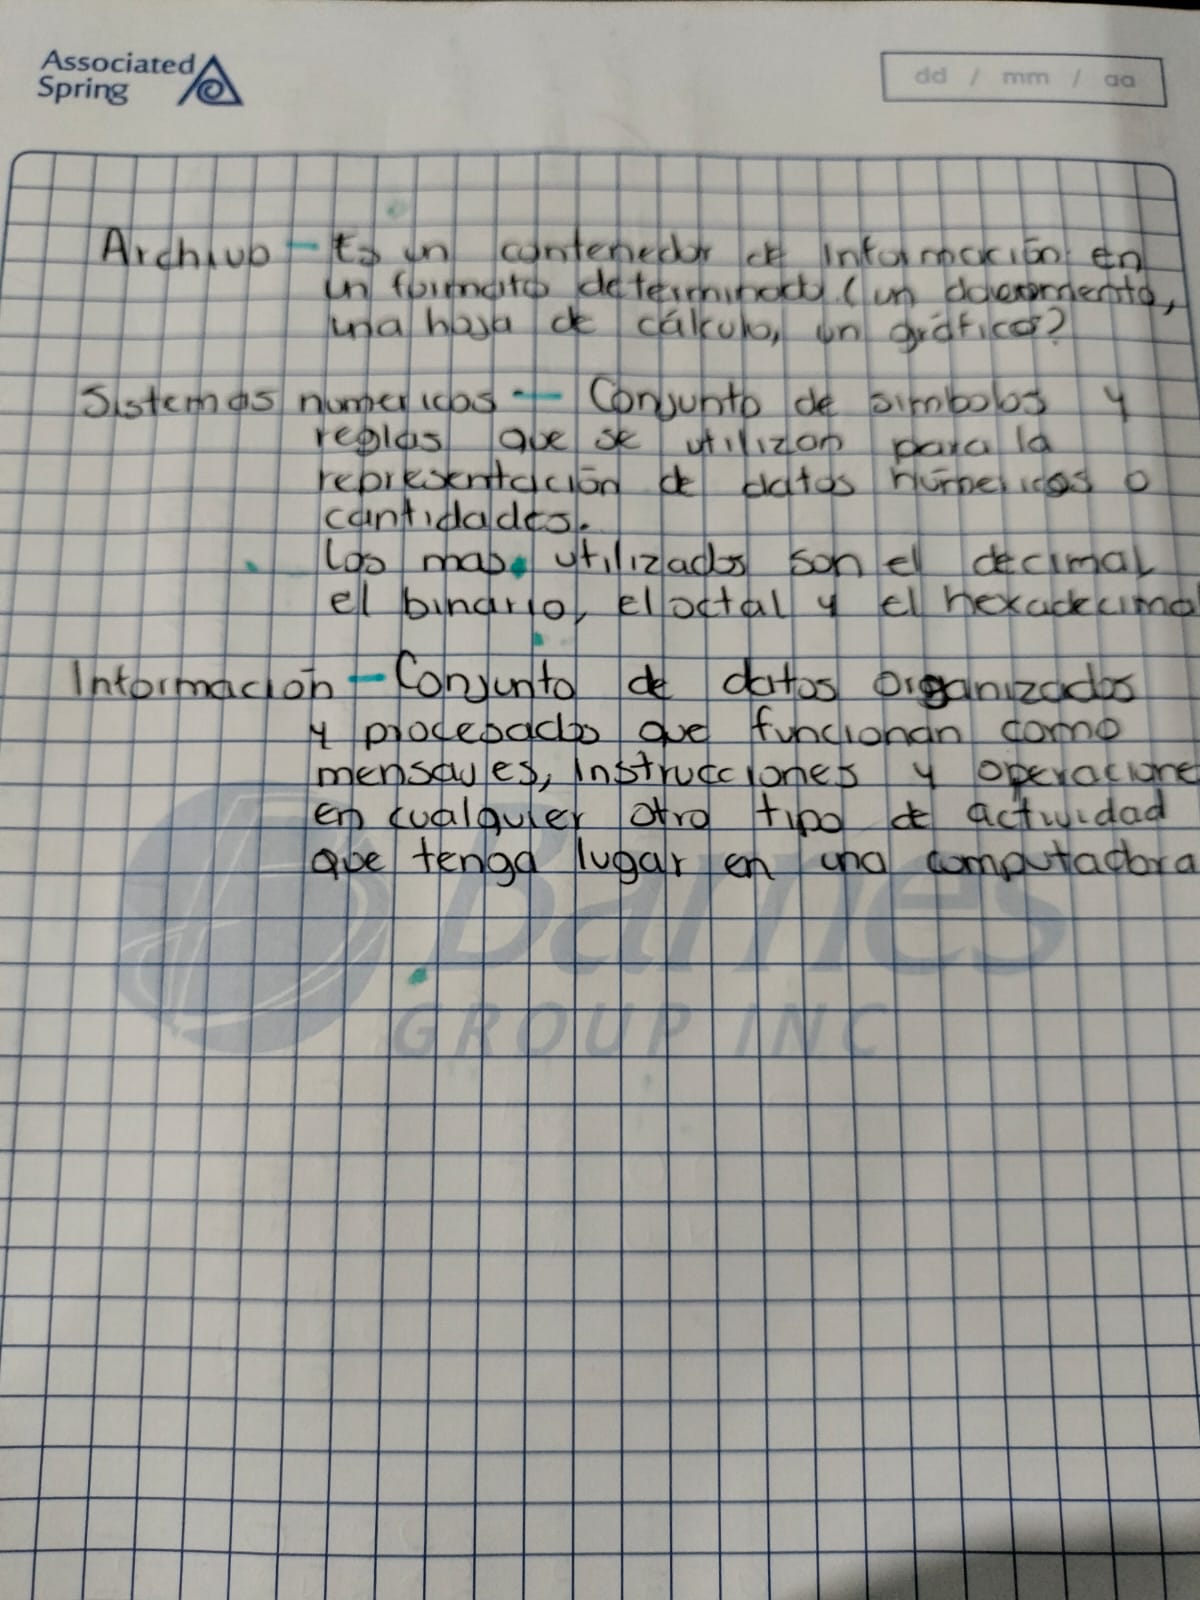 Associated
Spring
dd / mm / aa
Archivo - Es un contenedor de información en
un formato determinado (un documento,
una hoja de cálculo, un gráficos?
Sistemas numericos - Conjunto de simbolos y
reglas que se utilizan para la
representación de datos númericos o
cantidades.
Los mas utilizados son el decimal
el binario, el octal y el hexadecimal
Información - Conjunto de datos organizados
y procesados que funcionan como
mensajes, instrucciones y operacione
en cualquier otro tipo de actividad
que tenga lugar en una computadora
Barnes
GROUP INC